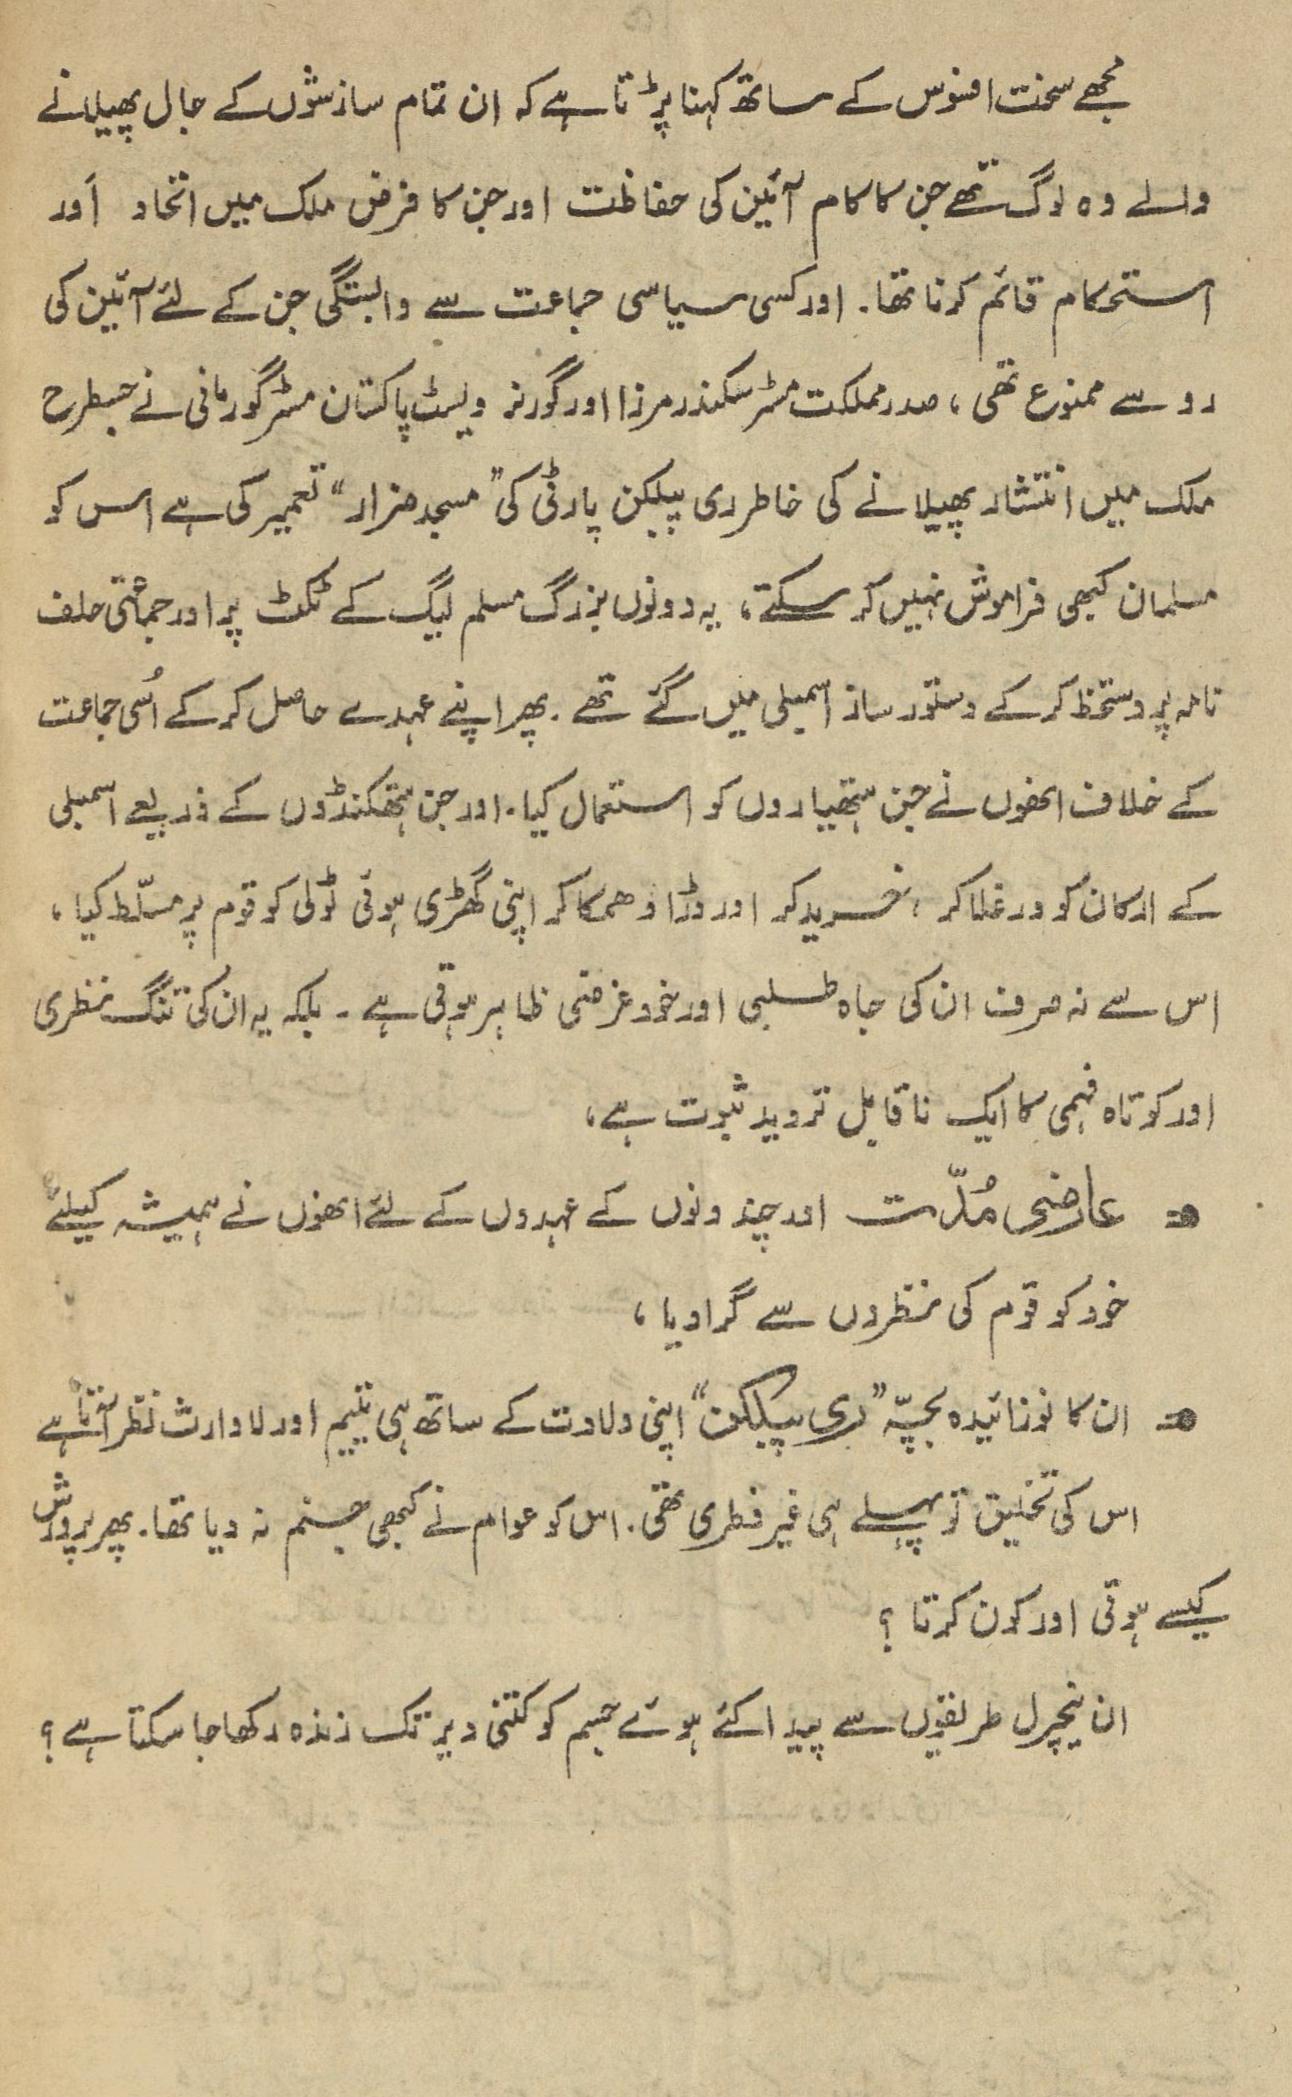 مجھے سخت افسوس کے ساتھ کہنا پڑتا ہے کہ ان تمام سازشوں کے جال پھیلانے
والے وہ لوگ تھے جن کا کام آئین کی حفاظت اور جن کا فرض ملک میں اتحاد اَور
استحکام قائم کرنا تھا۔ اور کسی سیاسی جماعت سے وابستگی جن کے لئے آئین کی
رو سے ممنوع تھی، صدر مملکت مسٹر سکندر مرزا اور گورنر ویسٹ پاکستان مسٹر گورمانی نے جسطرح
ملک میں انتشار پھیلانے کی خاطر ری پبلکن پارٹی کی ”مسجد ضرار“ تعمیر کی ہے اس کو
مسلمان کبھی فراموش نہیں کر سکتے، یہ دونوں بزرگ مسلم لیگ کے ٹکٹ پر اور جماعتی حلف
نامہ پر دستخط کر کے دستور ساز اسمبلی میں گئے تھے۔ پھر اپنے عہدے حاصل کر کے اُسی جماعت
کے خلاف انھوں نے جن ہتھیاروں کو استعمال کیا۔ اور جن ہتھکنڈوں کے ذریعے اسمبلی
کے ارکان کو ورغلا کر، خرید کر اور ڈرا دھمکا کر اپنی گھڑی ہوئی ٹولی کو قوم پر مسلّط کیا،
اس سے نہ صرف ان کی جاہ طلبی اور خود غرضی ظاہر ہوتی ہے۔ بلکہ یہ ان کی تنگ نظری
اور کوتاہ فہمی کا ایک ناقابل تردید ثبوت ہے،
عارضی مُدّت اور چند دنوں کے عہدوں کے لئے انھوں نے ہمیشہ کیلئے
خود کو قوم کی نظروں سے گرا دیا،
ان کا نوزائیدہ بچّہ ”ری پبلکن“ اپنی ولادت کے ساتھ ہی یتیم اور لاوارث نظر آتا ہے
اس کی تخلیق تو پہلے ہی غیر فطری تھی۔ اس کو عوام نے کبھی جنم نہ دیا تھا۔ پھر پرورش
کیسے ہوتی اور کون کرتا ؟
ان نیچرل طریقوں سے پیدا کئے ہوئے جسم کو کتنی دیر تک زندہ رکھا جا سکتا ہے ؟